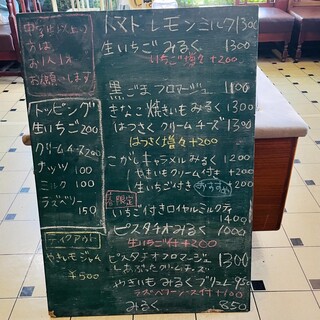 中学生以上の
方は
お1人1オ
お願いします
トッピング
生いちご 200
クリームチーズ 200
ナッツ 100
ミルク 100
ラズベリー
150
テイクアウト
やきいもジャム
¥500
トマトレモンミルク 1300
生いちごみるく 1300
いちご増々 +200
黒ごまフロマージュ 1100
きなこ焼きいもみるく 1300
はっさくクリームチーズ 1300
はっさく増々 +200
こがしキャラメルみるく 1200
やきいもクリーム付き +200
生いちご付き
限定
いちご付きロイヤルミルクティ
1400
ピスタチオみるく 1000
生いちご付 +200
ピスタチオフロマージュ 1300
しおぷったクリームチーズ
やきいもみるくブリュレ 950
ラズベリーソース付 +100
みるく 850